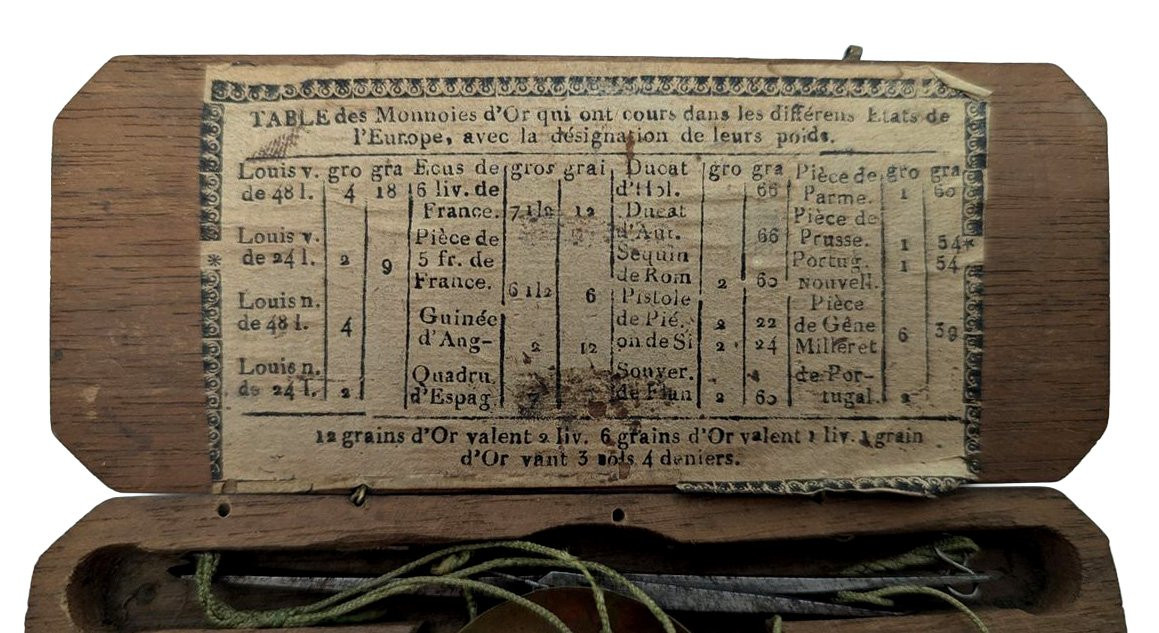 TABLE des Monnoies d'Or qui ont cours dans les différens Etats de
l'Europe, avec la désignation de leurs poids.
Louis v. gro gra
de 48 l. 4 18
Louis v.
de 24 l. 2 9
Louis n.
de 48 l. 4
Louis n.
de 24 l. 2
Ecus de gros grai
6 liv. de
France. 7 1|2 12
Pièce de
5 fr. de
France. 6 1|2 6
Guinée
d'Ang- 2 12
Quadru.
d'Espag 7
Ducat gro gra
d'Hol. 66
Ducat
d'Aut. 66
Sequin
de Rom 2 60
Pistole
de Pié. 2 22
on de Si 2 24
Souver.
de Flan 2 60
Pièce de gro gra
Parme. 1 60
Pièce de
Prusse. 1 54
Portug. 1 54
Nouvell.
Pièce
de Gêne 6 39
Milleret
de Por-
tugal. 2
12 grains d'Or valent 2 liv. 6 grains d'Or valent 1 liv. 1 grain
d'Or vant 3 sols 4 deniers.